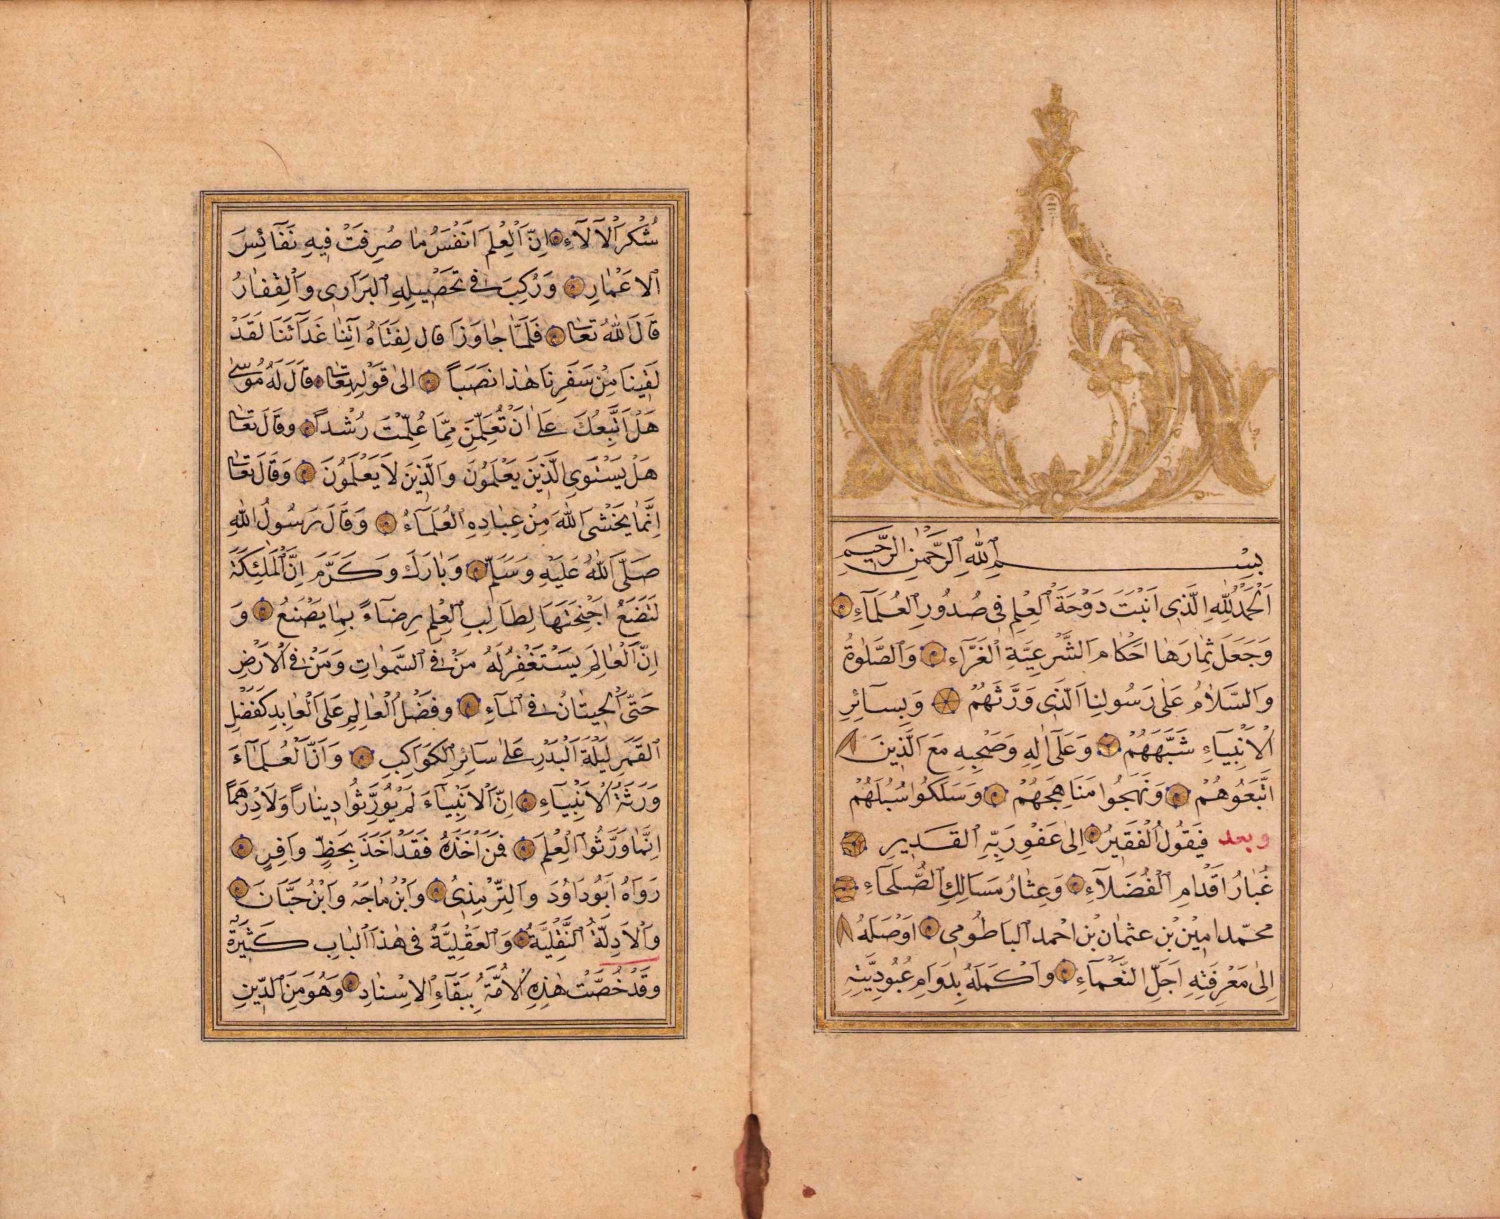 بِسْمِ اللهِ الرَّحْمٰنِ الرَّحِيمِ
اَلْحَمْدُ لِلّٰهِ الَّذِى اَنْبَتَ دَوْحَةَ الْعِلْمِ فِى صُدُورِ الْعُلَمَاءِ
وَجَعَلَ ثِمَارَهَا اَحْكَامَ الشَّرْعِيَّةِ الْغَرَّاءِ وَالصَّلٰوةُ
وَالسَّلَامُ عَلٰى رَسُولِنَا الَّذِى وَرَّثَهُمْ وَبِسَائِرِ
الْاَنْبِيَاءِ شَبَّهَهُمْ وَعَلٰى اٰلِهِ وَصَحْبِهِ مَعَ الَّذِينَ
اتَّبَعُوهُمْ وَنَهَجُوا مَنَاهِجَهُمْ وَسَلَكُوا سُبُلَهُمْ
وبعد فَيَقُولُ الْفَقِيرُ اِلٰى عَفْوِ رَبِّهِ الْقَدِيرِ
غُبَارُ اَقْدَامِ الْفُضَلَاءِ وَعِثَارُ مَسَالِكِ الصُّلَحَاءِ
محمّد امين بْن عثمان بْن احمد الباطومى اَوْصَلَهُ
اِلٰى مَعْرِفَتِهِ اَجَلِّ النَّعْمَاءِ وَاَكْمَلَهُ بِدَوَامِ عُبُودِيَّتِهِ
شُكْرَ الْاٰلَاءِ اِنَّ الْعِلْمَ اَنْفَسُ مَا صُرِفَتْ فِيهِ نَفَائِسُ
الْاَعْمَارِ وَرُكِبَ فِى تَحْصِيلِهِ الْبَرَارِى وَالْقِفَارُ
قَالَ اللهُ تَعَالٰى فَلَمَّا جَاوَزَا قَالَ لِفَتٰاهُ اٰتِنَا غَدَائَنَا لَقَدْ
لَقِينَا مِنْ سَفَرِنَا هٰذَا نَصَباً اِلٰى قَوْلِهِ تَعَالٰى قَالَ لَهُ مُوسٰى
هَلْ اَتَّبِعُكَ عَلٰى اَنْ تُعَلِّمَنِ مِمَّا عُلِّمْتَ رُشْداً وَقَالَ تَعَالٰى
هَلْ يَسْتَوِى الَّذِينَ يَعْلَمُونَ وَالَّذِينَ لَا يَعْلَمُونَ وَقَالَ تَعَالٰى
اِنَّمَا يَخْشَى اللهَ مِنْ عِبَادِهِ الْعُلَمَاءُ وَقَالَ رَسُولُ اللهِ
صَلَّى اللهُ عَلَيْهِ وَسَلَّمَ وَبَارَكَ وَكَرَّمَ اِنَّ الْمَلٰئِكَةَ
لَتَضَعُ اَجْنِحَتَهَا لِطَالِبِ الْعِلْمِ رِضَاءً بِمَا يَصْنَعُ وَ
اِنَّ الْعَالِمَ يَسْتَغْفِرُ لَهُ مَنْ فِى السَّمٰوَاتِ وَمَنْ فِى الْاَرْضِ
حَتَّى الْحِيتَانُ فِى الْمَاءِ وَفَضْلُ الْعَالِمِ عَلَى الْعَابِدِ كَفَضْلِ
الْقَمَرِ لَيْلَةَ الْبَدْرِ عَلٰى سَائِرِ الْكَوَاكِبِ وَاَنَّ الْعُلَمَاءَ
وَرَثَةُ الْاَنْبِيَاءِ اِنَّ الْاَنْبِيَاءَ لَمْ يُوَرِّثُوا دِينَاراً وَلَا دِرْهَماً
اِنَّمَا وَرَّثُوا الْعِلْمَ فَمَنْ اَخَذَهُ فَقَدْ اَخَذَ بِحَظٍّ وَافِرٍ
رَوَاهُ اَبُو دَاوُدَ وَالتِّرْمِذِىُّ وَابْنُ مَاجَهْ وَابْنُ حَبَّانَ
وَالْاَدِلَّةُ النَّقْلِيَّةُ وَالْعَقْلِيَّةُ فِى هٰذَا الْبَابِ كَثِيرَةٌ
وَقَدْ خُصَّتْ هٰذِهِ الْاُمَّةُ بِبَقَاءِ الْاِسْنَادِ وَهُوَ مِنَ الدِّينِ